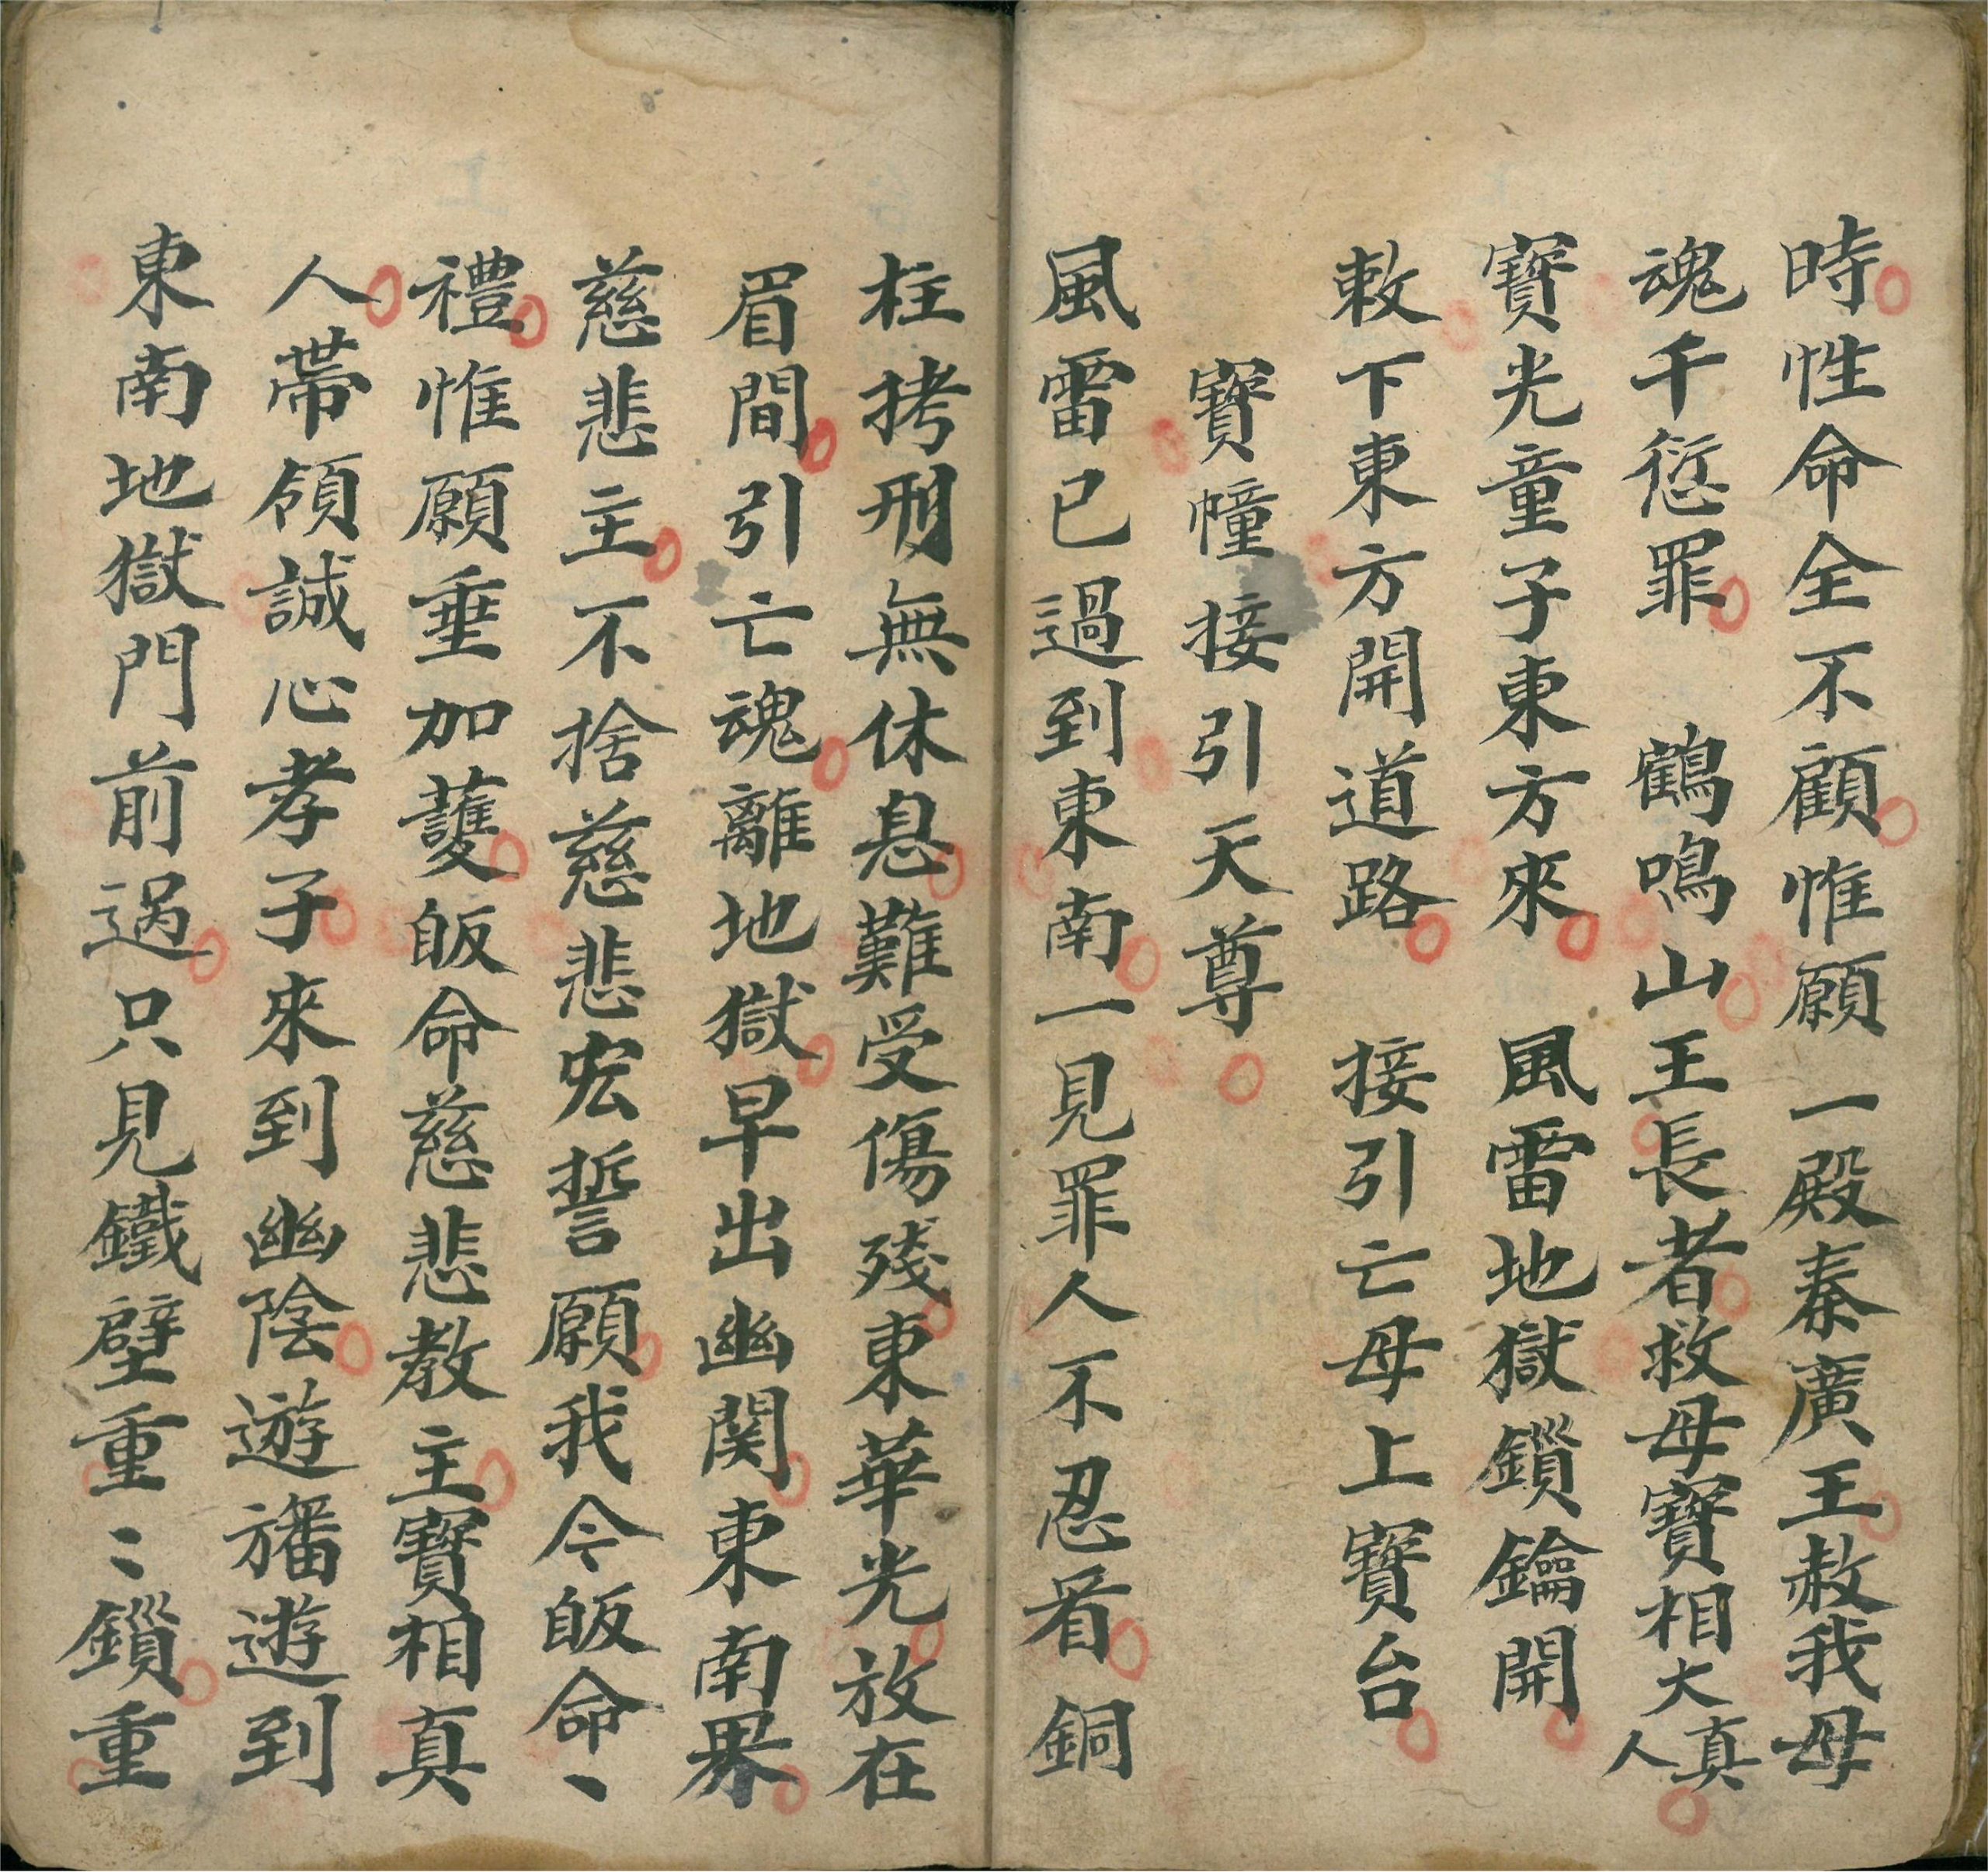 時性命全不顧惟願一殿秦廣王赦我母
魂千愆罪　鶴鳴山王長者救母寶相大真人
寶光童子東方來　風雷地獄鎖鑰開
敕下東方開道路　接引亡母上寶台
寶幢接引天尊
風雷已過到東南一見罪人不忍看銅
柱拷刑無休息難受傷殘東華光放在
眉間引亡魂離地獄早出幽関東南界
慈悲主不捨慈悲宏誓願我今皈命丶
禮惟願垂加護皈命慈悲教主寶相真
人帶領誠心孝子來到幽陰遊旛遊到
東南地獄門前過只見鐵壁重〻鎖重